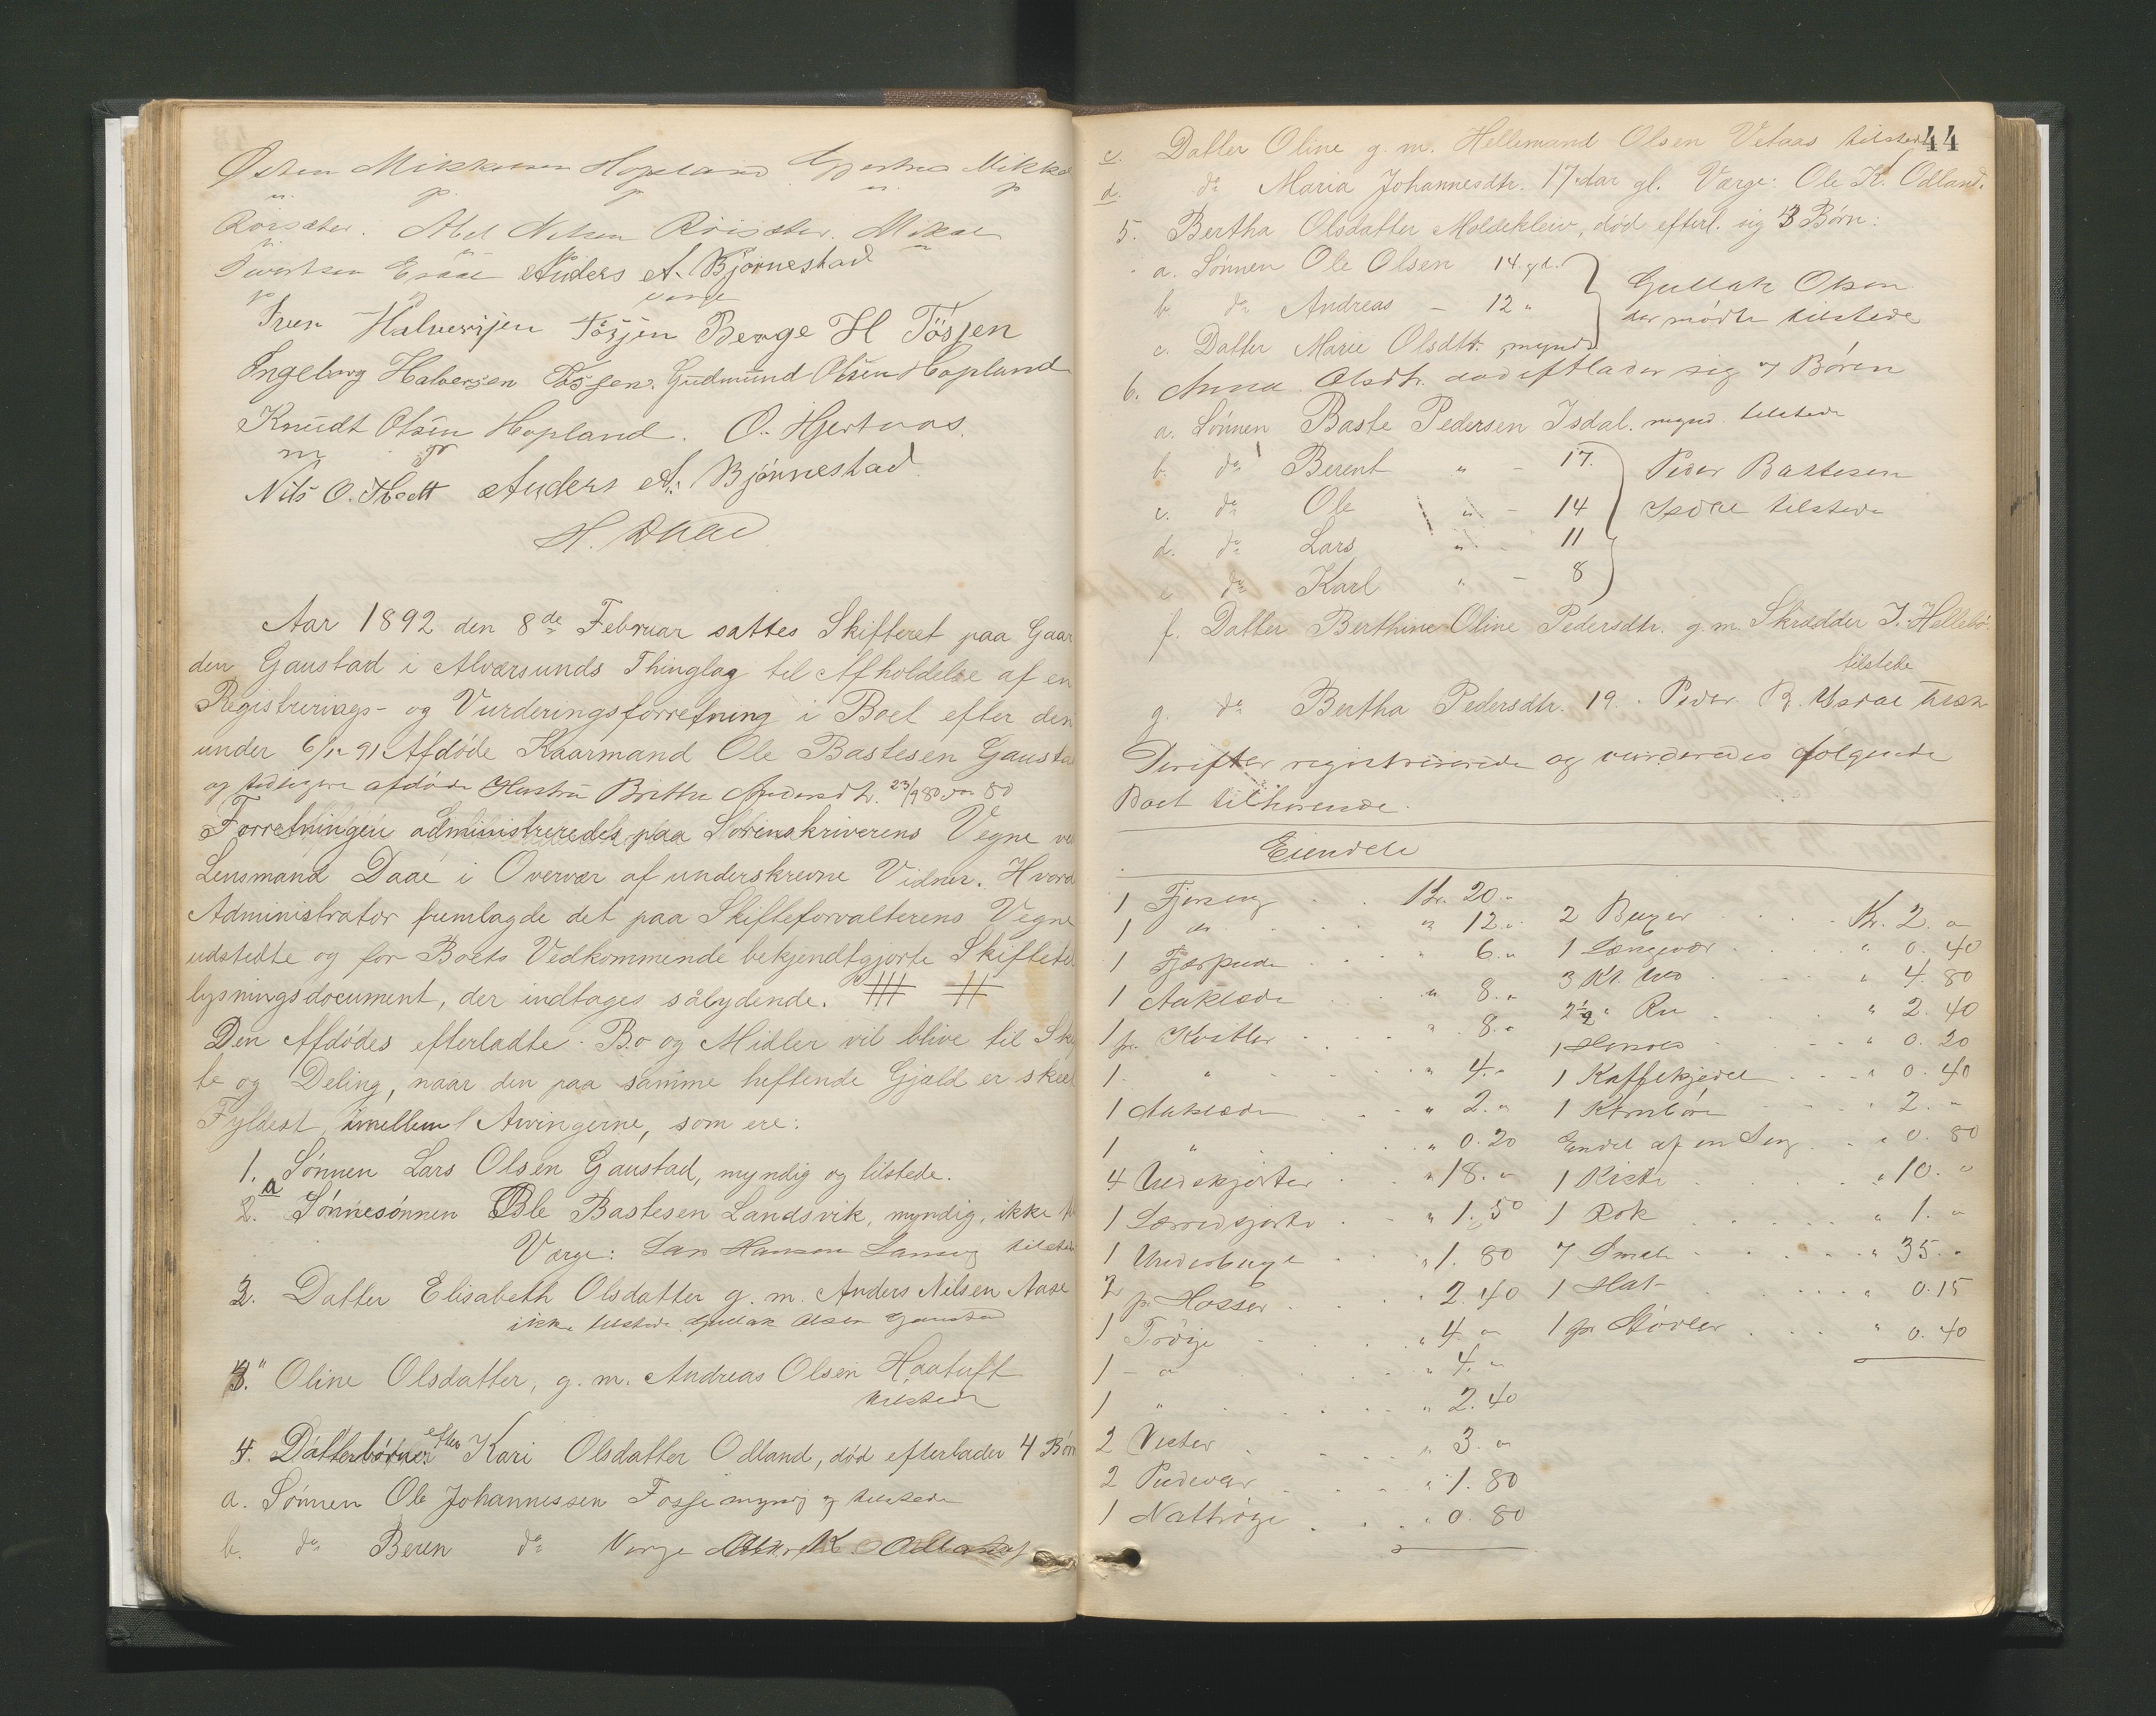 Østen Mikkelsen Hopland Gjertrud Mikkels
m. p. p. m. p
Röisæter. Abel Nilsen Röisæter. Mikal
Sivertsen Anders A. Bjørnestad
Iver Halversjen Tösjen Berge H Tösjen
Ingeborg Halversen Tosjen. Gudmund Olsen Hopland
Knudt Olsen Hopland. O. Hjertaas.
Nils O. Anders A: Bjørnestad
H. Daae
Aar 1892 den 8de Februar sattes Skifteret paa Gaar
den Gaustad i Alværsunds Thinglag til Afholdelse af en
Registrerings- og Vurderingsforretning i Boet efter den
under 6/12 91 Afdøde Kaarmand Ole Bastesen Gausta
og tidligere afdøde Hustru Brithe Andersdtr. 23/9 80
Forretningen administreredes paa Sorenskriverens Vegne ved
Lensmand Daae i Overvær af underskrevne Vidner. Hvord
Administrator fremlagde det paa Skifteforvalterens Vegne
udstedte og for Boets Vedkommende bekjendtgjorte Skiftetil
lysningsdocument, der indtages sålydende.
Den Afdødes efterladte Bo og Midler vil blive til Skif
te og Deling, naar den paa samme heftende Gjæld er skeet
Fyldest, imellem Arvingerne, som ere:
1. Sønnen Lars Olsen Gaustad, myndig og tilstede.
a
2. Sønnesønnen Ole Bastesen Landsvik, myndig, ikke t
Værge: Lars Hansen tilstede
2. Datter Elisabeth Olsdatter g. m. Anders Nilsen Aase
ikke tilstede Gullak Olsen Gaustad
3. " Oline Olsdatter, g. m. Andreas Olsen Haatuft
tilstede
4. Datterbørner efter Kari Olsdatter Odland, død efterlader 4 Børn
a. Sønnen Ole Johannessen Fosse myndig og tilstede
b. do Beren do Værge K. Odland
44
c. Datter Oline g. m. Hellemand Olsen Vetaas tilstede
d. do Maria Johannesdtr. 17 dar gl. Værge: Ole K. Odland.
5. Bertha Olsdatter Moldekleiv, død efterl. sig 3 Børn:
a. Sønnen Ole Olsen 14. gl.
b. do Andreas - 12 "
Gullak Olsen
der mødte tilstede
c. Datter Marie Olsdtr. mynd.
6. Anna Olsdtr. død eftlader sig 7 Børen
a. Sønnen Baste Pedersen Isdal. mynd. tilstede
b. do Berent " - 17.
Peder Bastesen
c. do Ole " - 14
Isdal tilstede
d. do Lars " 11
e do Karl " - 8
f. Datter Berthine Oline Pedersdtr. g. m. Skrædder J. Hellebø
tilstede
g. do Bertha Pedersdtr. 19. Peder B. Isdal
Derefter registrerede og vurderedes følgende
Boet tilhørende.
Eiendele
1 Fjerseng Kr. 20.
1 do " 12. "
1 Fjærpude " 6. "
1 Aaklæde " 8. "
1 pr. " 8. "
1 " " 4. "
1 Aaklæde " 2. "
1 " " 0. 20
4 Uldskjorter " 18. "
1 Lærredsjorte " 1. 50
1 Underbuxe " 1. 80
2 p. Hosser " 2. 40
1 Trøje " 4. "
1 - " " 4. "
1 " " 2. 40
2 Vester " 3. "
2 Pudevar " 1. 80
1 Nattrøje " 0. 80
2 Buxer Kr. 2. "
1 Længevær " 0. 40
3 Kl. Uld " 4. 80
2½ " " 2. 40
1 " 0. 20
1 Kaffekjedel " 0. 40
1 2. "
Endel af en Seng " 0. 80
1 Kiste " 10. "
1 Rok " 1. "
7 Smale " 35. "
1 Hat " 0. 15
1 pr Støvler " 0. 40